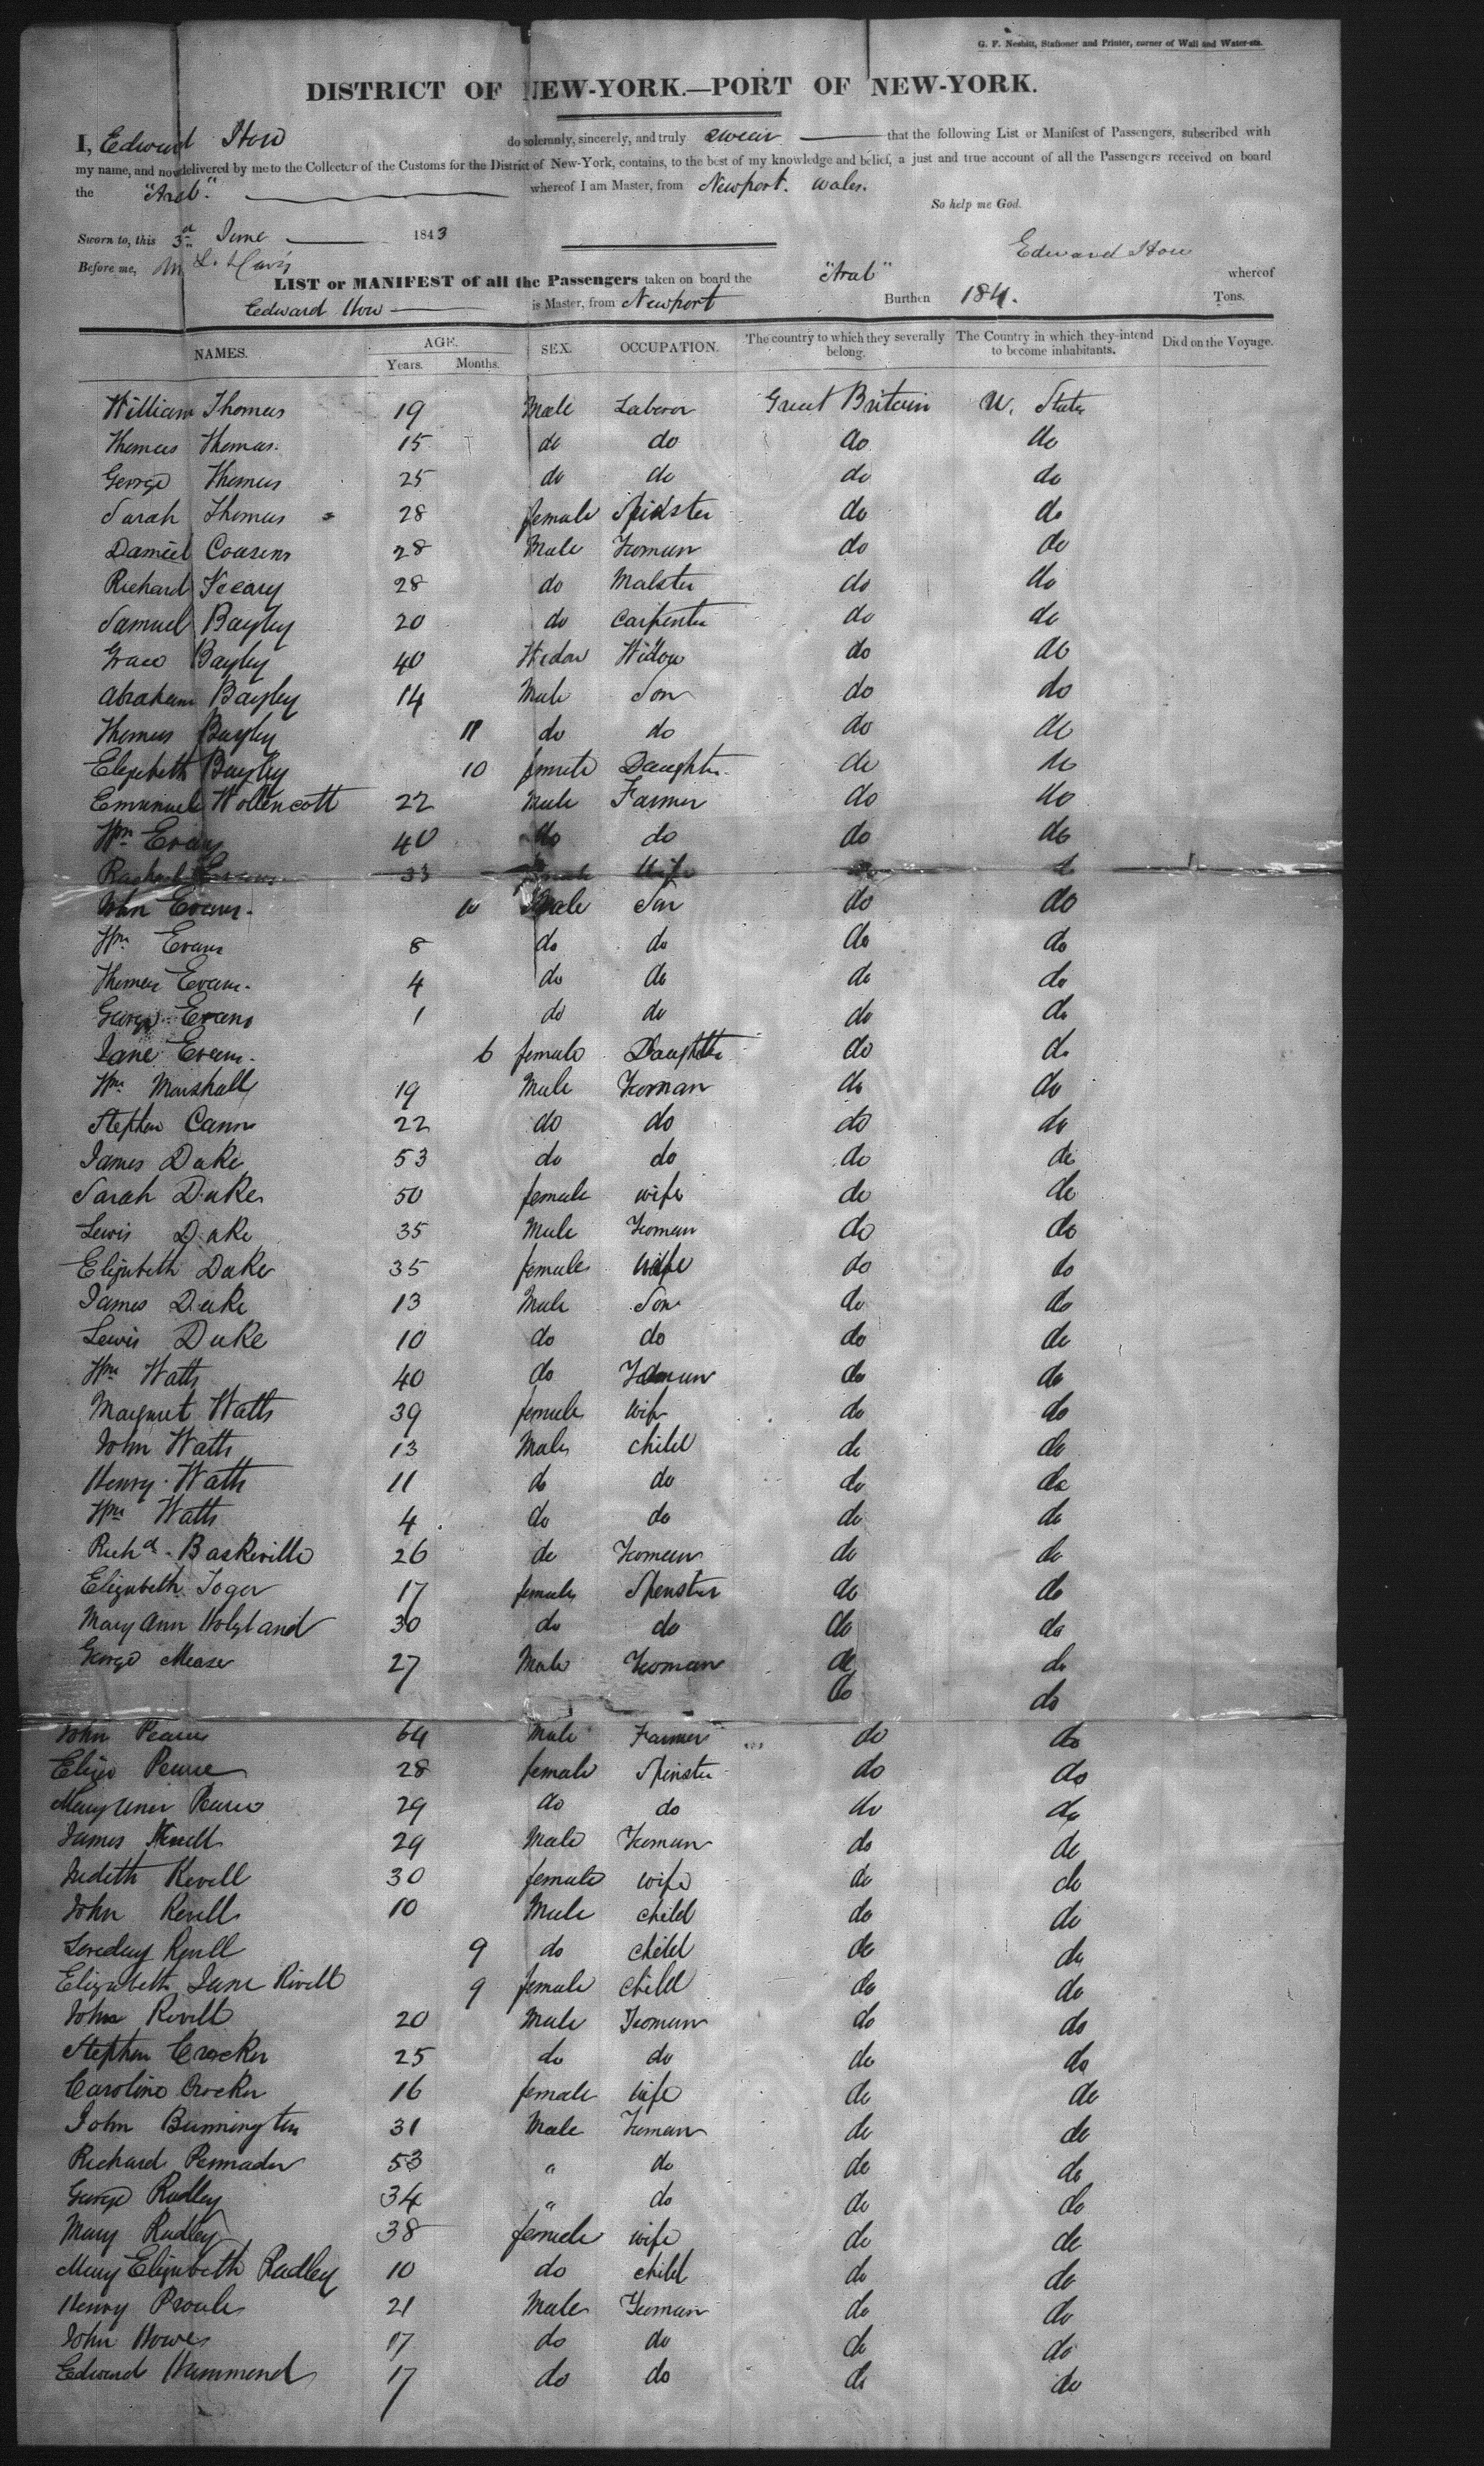 G. F. Nesbitt, Stationer and Printer, corner of Wall and Water-sts.
DISTRICT OF NEW-YORK.—PORT OF NEW-YORK.
I, Edward How do solemnly, sincerely, and truly swear that the following List or Manifest of Passengers, subscribed with
my name, and now delivered by me to the Collector of the Customs for the District of New-York, contains, to the best of my knowledge and belief, a just and true account of all the Passengers received on board
the "Arab". whereof I am Master, from Newport. Wales.
So help me God.
Sworn to, this 3d June 1843
Edward How
Before me, M. L. Davis
LIST or MANIFEST of all the Passengers taken on board the "Arab" whereof
Edward How is Master, from Newport Burthen 184. Tons.
NAMES. AGE. Years. Months. SEX. OCCUPATION. The country to which they severally belong. The Country in which they intend to become inhabitants. Died on the Voyage.
William Thomas 19 Male Labourer Great Britain U. States
Thomas Thomas. 15 do do do do
George Thomas 25 do do do do
Sarah Thomas 28 female Spinster do do
Daniel Cousens 28 Male Yeoman do do
Richard 28 do Malster do do
Samuel Bayley 20 do Carpenter do do
Grace Bayley 40 Widow Widow do do
Abraham Bayley 14 Male Son do do
Thomas Bayley 11 do do do do
Elizabeth Bayley 10 female Daughter do do
Emmanuel Wollencott 22 Male Farmer do do
Wm Evans 40 do do do do
Rachael Evans 33 female Wife do do
John Evans. 10 Male Son do do
Wm Evans 8 do do do do
Thomas Evans. 4 do do do do
George Evans 1 do do do do
Jane Evans. 6 female Daughter do do
Wm Marshall 19 Male Yeoman do do
Stephen Cann 22 do do do do
James Duke 53 do do do do
Sarah Duke 50 female wife do do
Lewis Duke 35 Male Yeoman do do
Elizabeth Duke 35 female wife do do
James Duke 13 Male Son do do
Lewis Duke 10 do do do do
Wm Watts 40 do Yeoman do do
Margaret Watts 39 female wife do do
John Watts 13 Male child do do
Henry Watts 11 do do do do
Wm Watts 4 do do do do
Richd Baskerville 26 do Yeoman do do
Elizabeth 17 female Spenster do do
Mary Ann Holyland 30 do do do do
George Mease 27 Male Yeoman do do
do do
John Pearse 64 Male Farmer do do
Eliza Pearse 28 female Spinster do do
Mary Ann Pearse 29 do do do do
James Revell 29 Male Yeoman do do
Judith Revell 30 female wife do do
John Revell 10 Male child do do
Loveday Revell 9 do child do do
Elizabeth Jane Rivell 9 female child do do
John Revell 20 Male Yeoman do do
Stephen Crocker 25 do do do do
Caroline Crocker 16 female wife do do
John Bunnington 31 Male Yeoman do do
Richard 53 " do do do
George Radley 34 " do do do
Mary Radley 38 female wife do do
Mary Elizabeth Radley 10 do child do do
Henry Proule 21 Male Yeoman do do
John Howe 17 do do do do
Edward Hammond 17 do do do do